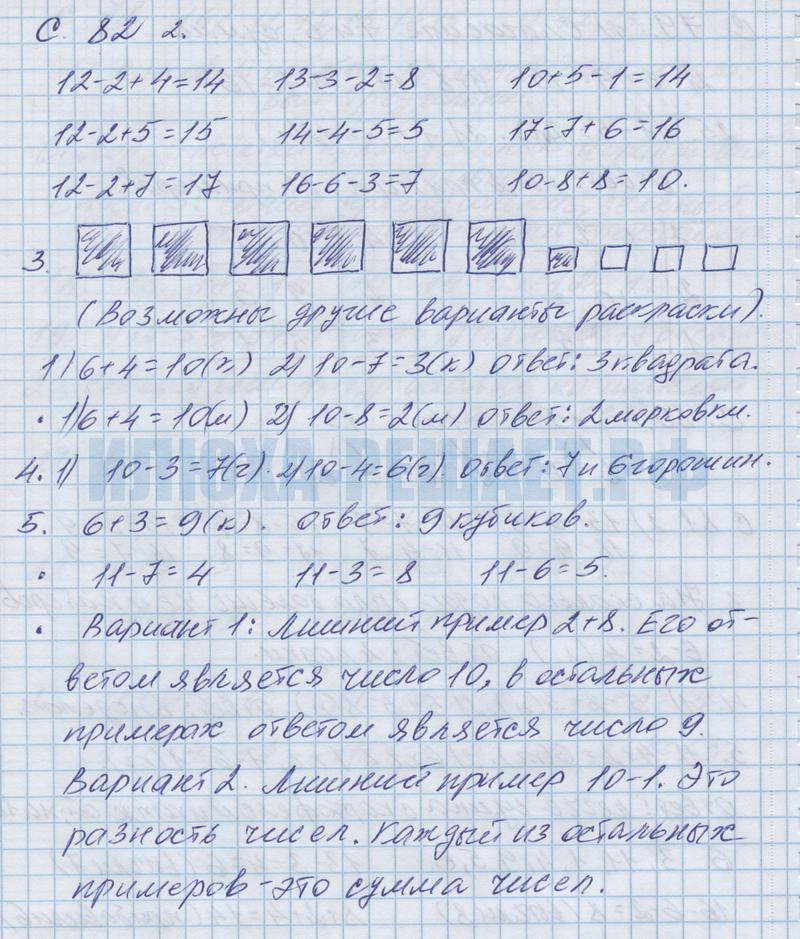 С. 82 2.
12-2+4=14 13-3-2=8 10+5-1=14
12-2+5=15 14-4-5=5 17-7+6=16
12-2+7=17 16-6-3=7 10-8+8=10.
3.
(Возможны другие варианты раскраски).
1) 6+4=10(к) 2) 10-7=3(к) ответ: 3 квадрата.
• 1) 6+4=10(м) 2) 10-8=2(м) ответ: 2 морковки.
ИЛЮХА-РЕШАЕТ.РФ
4. 1) 10-3=7(г). 2) 10-4=6(г). Ответ: 7 и 6 горошин.
5. 6+3=9(к). Ответ: 9 кубиков.
• 11-7=4 11-3=8 11-6=5.
• Вариант 1: Лишний пример 2+8. Его от-
ветом является число 10, в остальных
примерах ответом является число 9.
Вариант 2. Лишний пример 10-1. Это
разность чисел. Каждый из остальных
примеров - это сумма чисел.